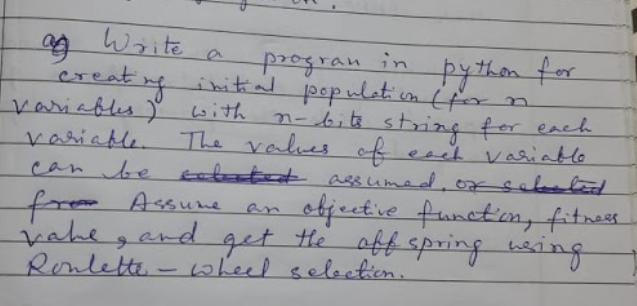 Write a program in python for
creating initial population (for n
variables) with n-bits string for each
variable. The values of each variable
can be assumed.
Assume an objective function, fitness
value, and get the offspring using
Roulette-wheel selection.